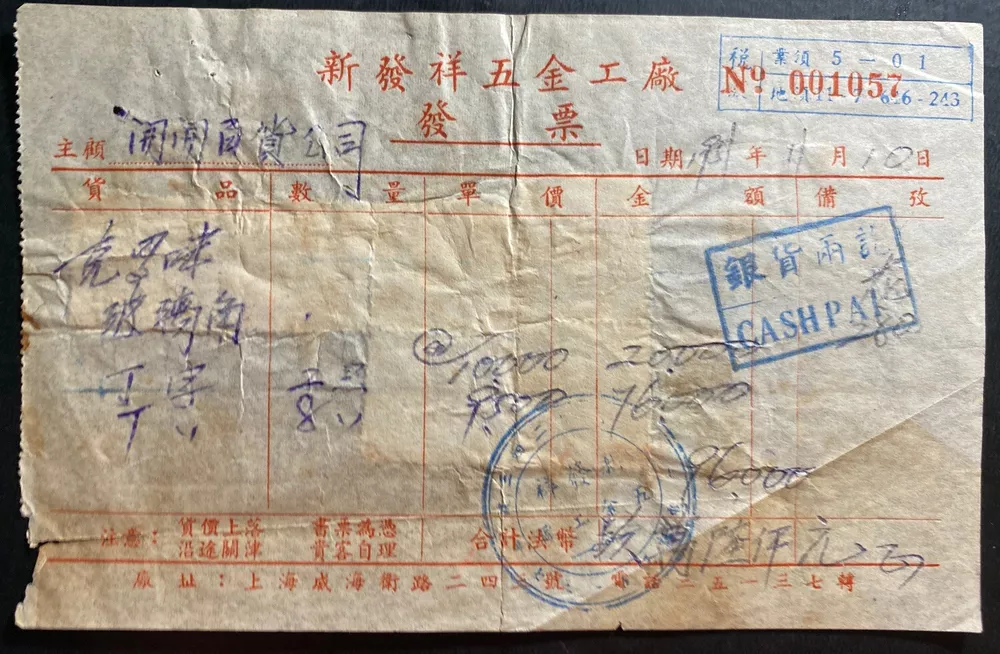 新發祥五金工廠
發票
業須 5-01
Nº 001057
6-243
主顧 開開百貨公司
日期 年 11 月 10 日
貨品 數量 單價 金額 備攷
克罗咪
玻璃角
丁字 二只 @10000 20,000
丁〃 8〃 9500 76,000
96,000
銀貨兩訖
CASH PAI
注意： 貨價上落 書票為憑
沿途關津 貴客自理
合計法幣 玖萬陸仟元正
廠址：上海威海衛路二四 號 電話三五一三七轉